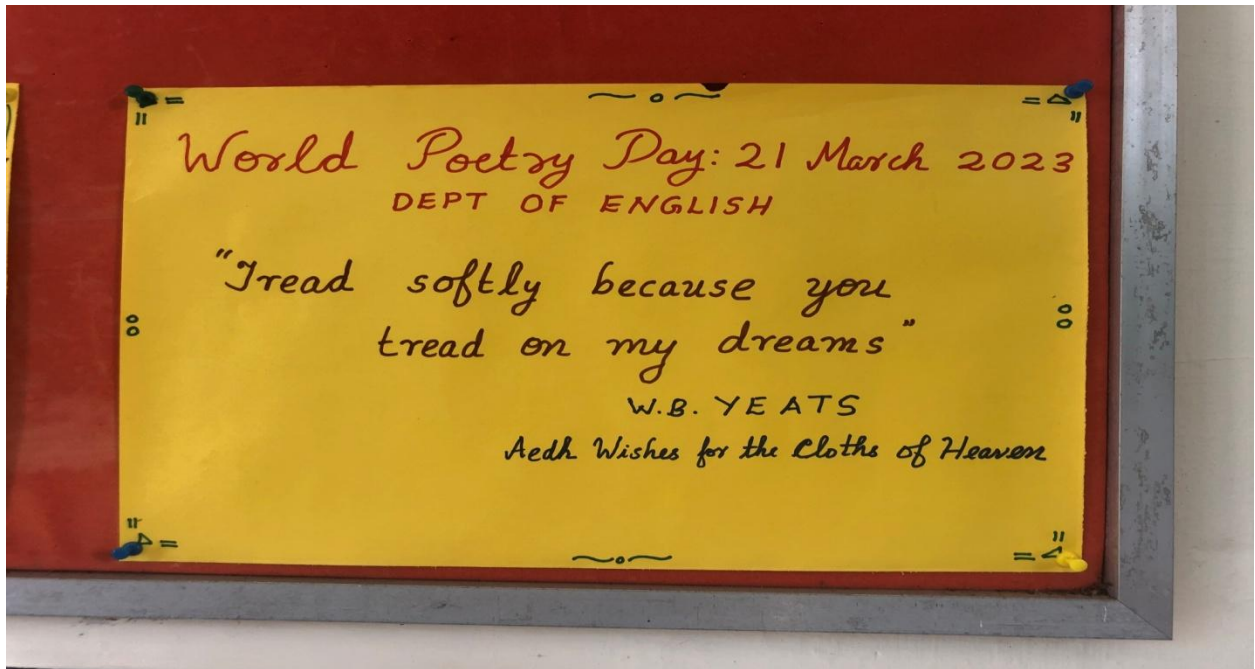 World Poetry Day: 21 March 2023
DEPT OF ENGLISH
"Tread softly because you
tread on my dreams"
W.B. YEATS
Aedh Wishes for the Cloths of Heaven